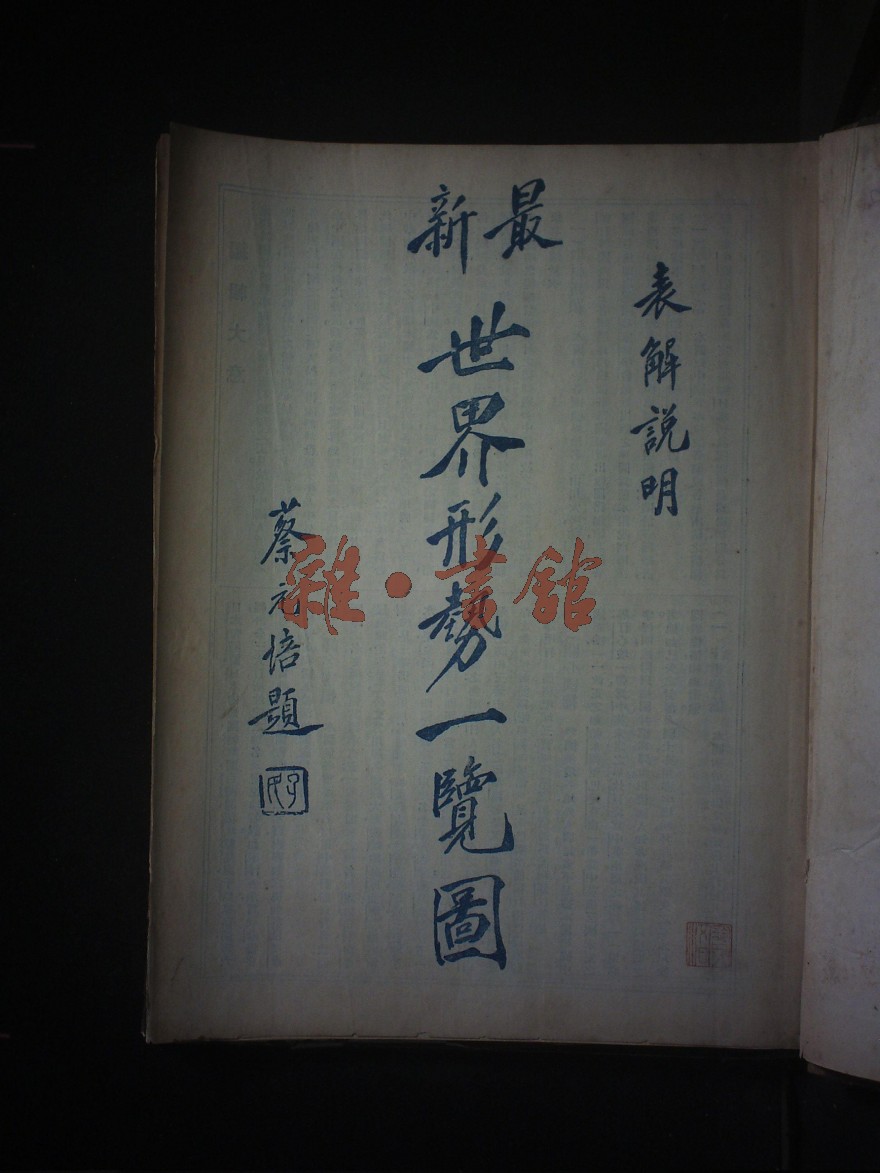 表解說明
最新
世界形勢一覽圖
蔡元培題
雜·書館